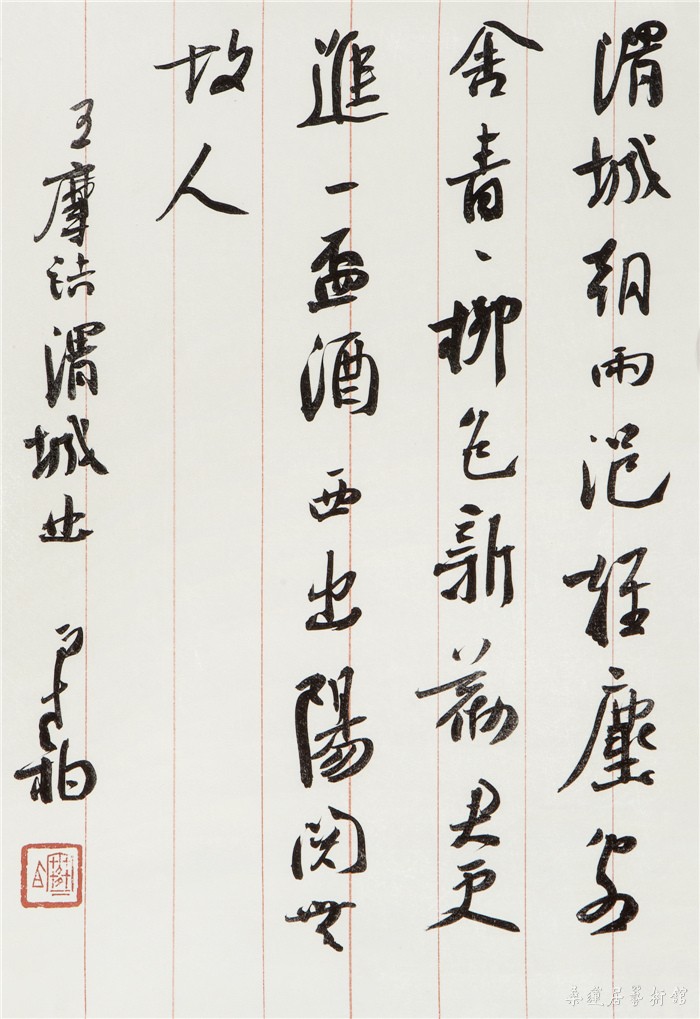 渭城朝雨浥輕塵客
舍青、柳色新勸君更
進一盃酒西出陽関無
故人
王摩詰渭城曲
桑蓮居藝術館